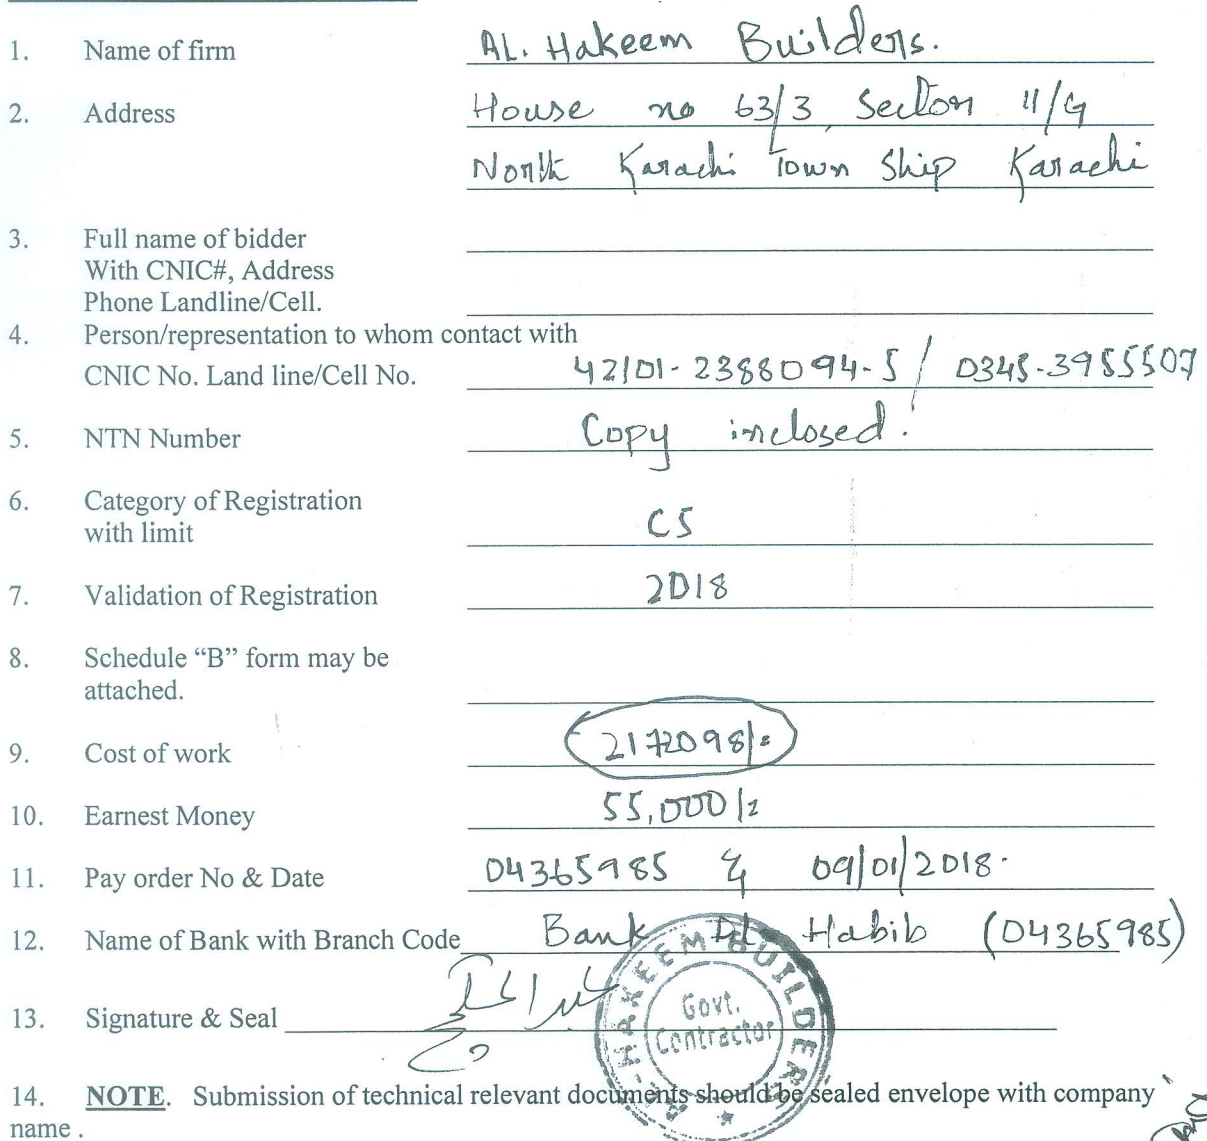 1. Name of firm AL. Hakeem Builders.
2. Address House no 63/3, Sector 11/G
North Karachi Town Ship Karachi
3. Full name of bidder
With CNIC#, Address
Phone Landline/Cell.
4. Person/representation to whom contact with
CNIC No. Land line/Cell No. 42101-2388094-5 / 0345-3955507
5. NTN Number Copy inclosed.
6. Category of Registration
with limit C5
7. Validation of Registration 2018
8. Schedule “B” form may be
attached.
9. Cost of work 2172098/=
10. Earnest Money 55,000/=
11. Pay order No & Date 04365985 & 09/01/2018.
12. Name of Bank with Branch Code Bank AL Habib (04365985)
13. Signature & Seal
AL-HAKEEM BUILDERS
Govt.
Contractor
14. NOTE. Submission of technical relevant documents should be sealed envelope with company
name .